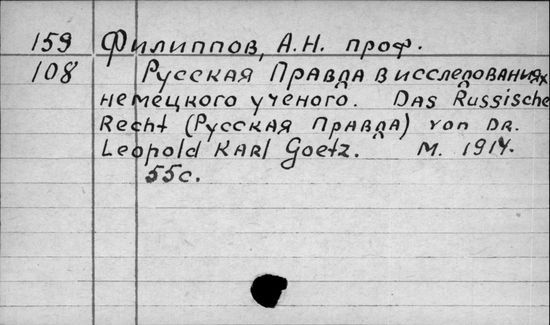 159 Филиппов, А.Н. проф.
108 Русская Правда в исследованиях
немецкого ученого. Das Russische
Recht (Русская Правда) von Dr.
Leopold Karl Goetz. М. 1914.
55с.